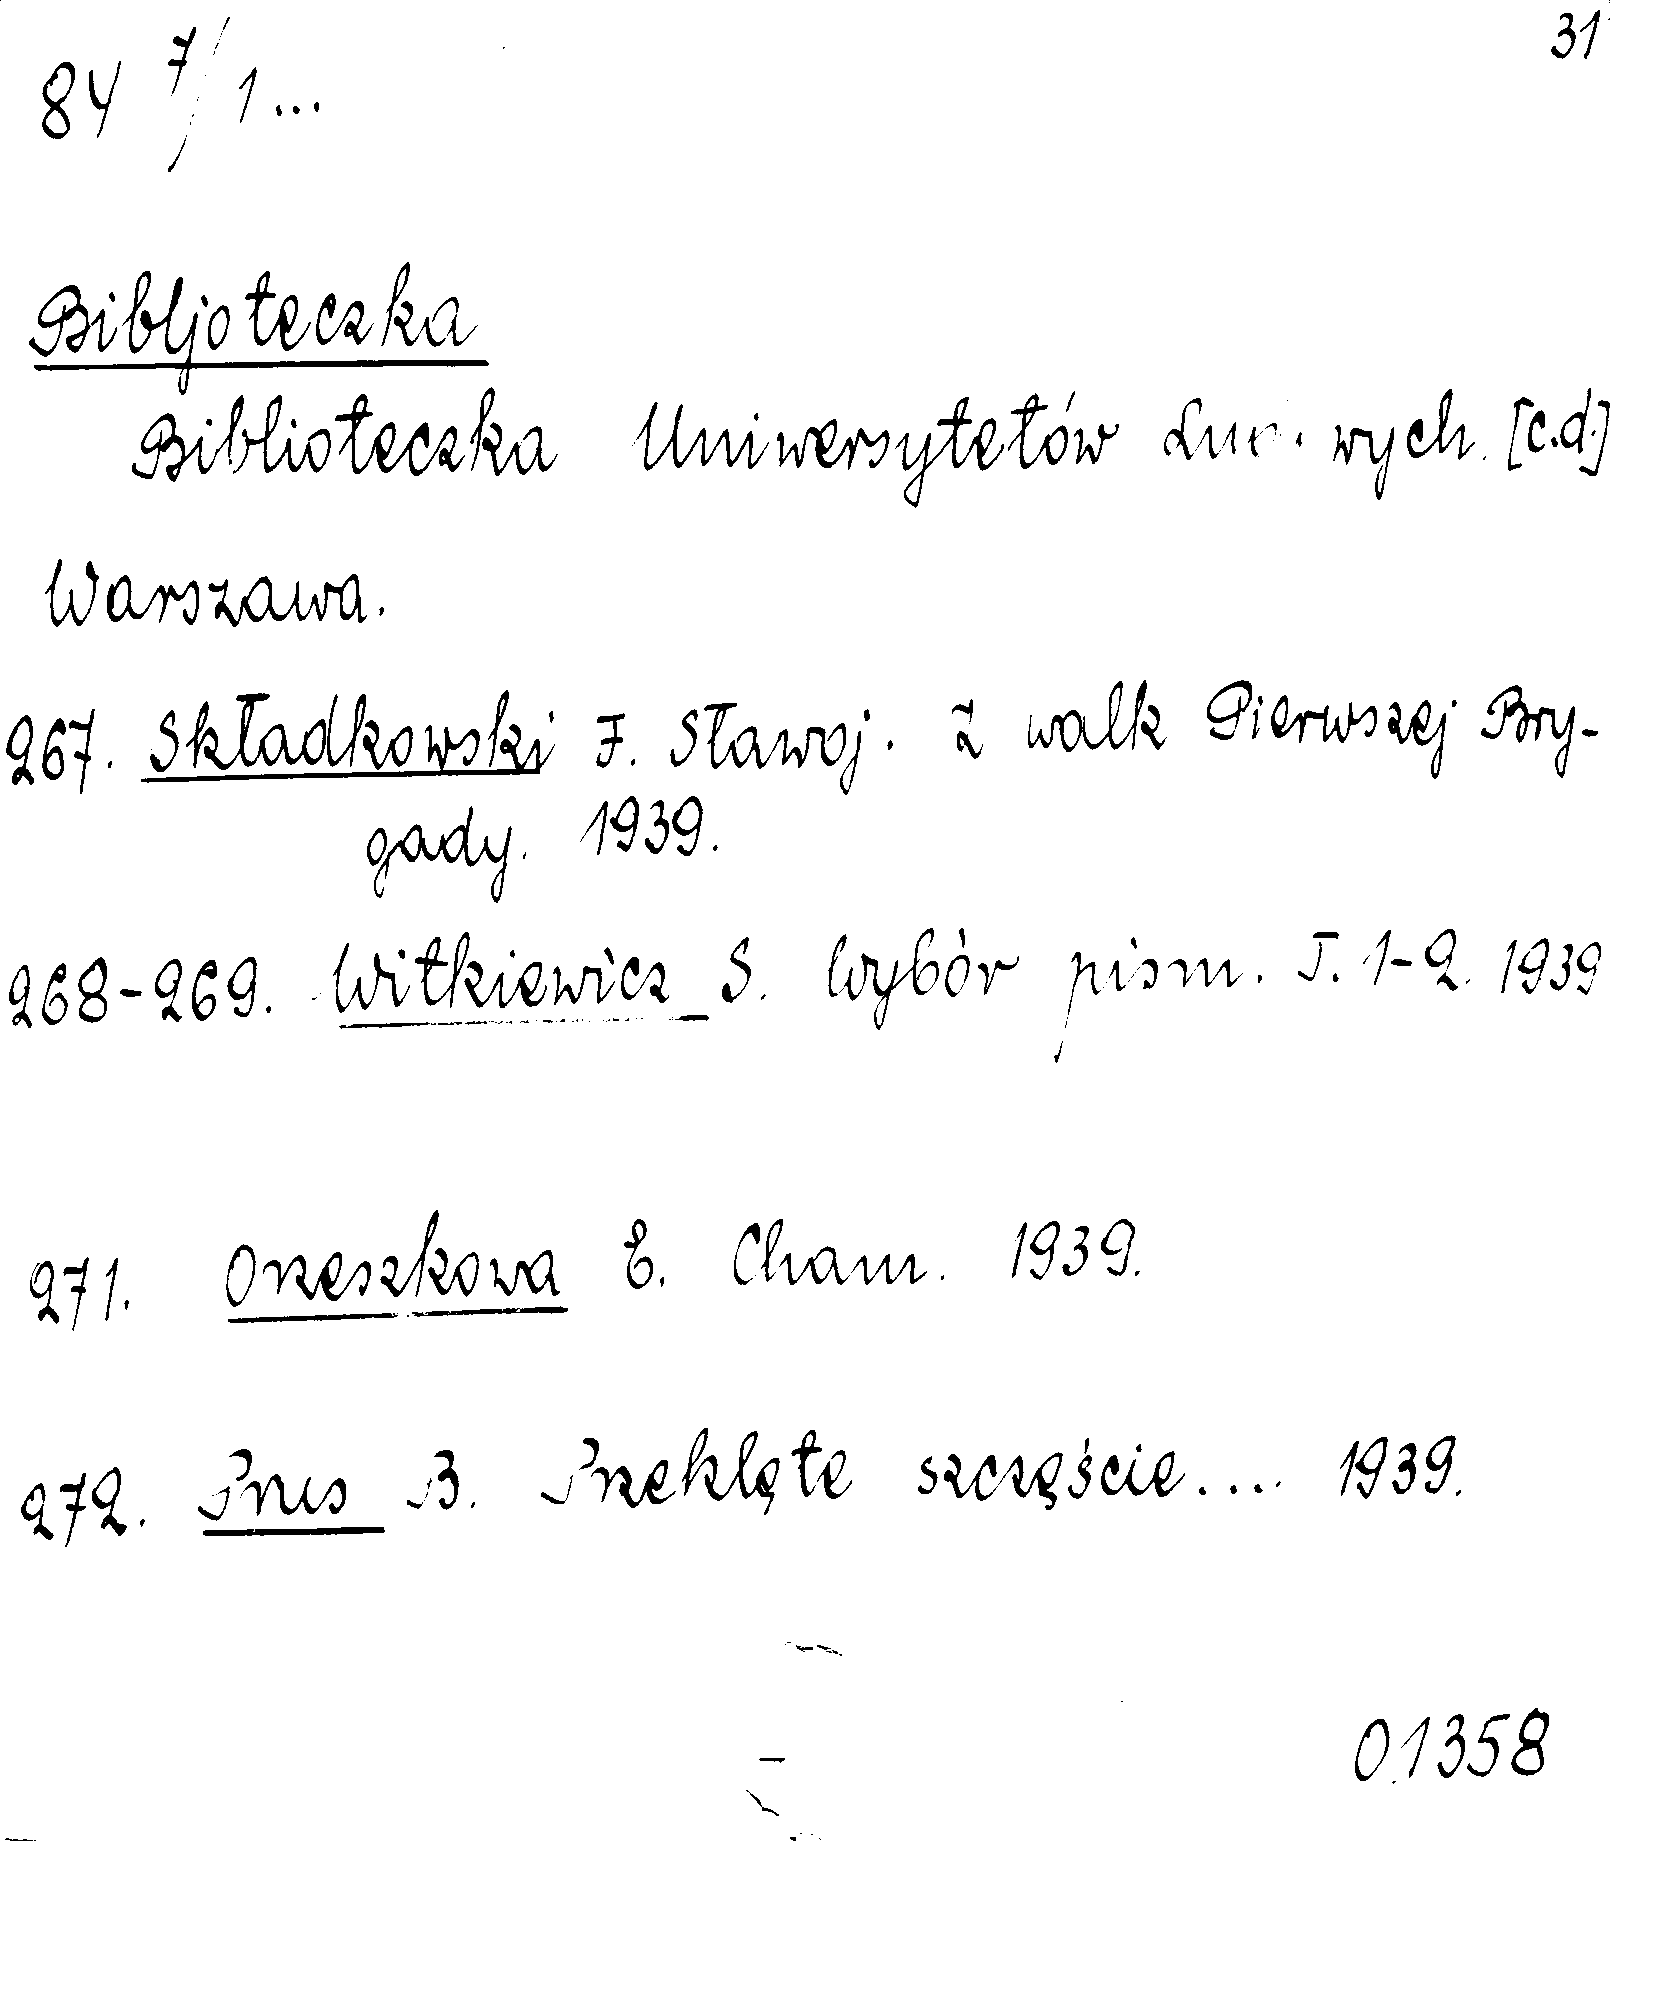 31
84 7/1...
Bibljoteczka
Biblioteczka Uniwersytetów wych. [c.d.]
Warszawa.
267. Składkowski F. Sławoj. Z walk Pierwszej Bry-
gady. 1939.
268-269. Witkiewicz S. Wybór pism. T. 1-2. 1939
271. Orzeszkowa E. Cham. 1939.
272. Prus B. Przeklęte szczęście.... 1939.
01358